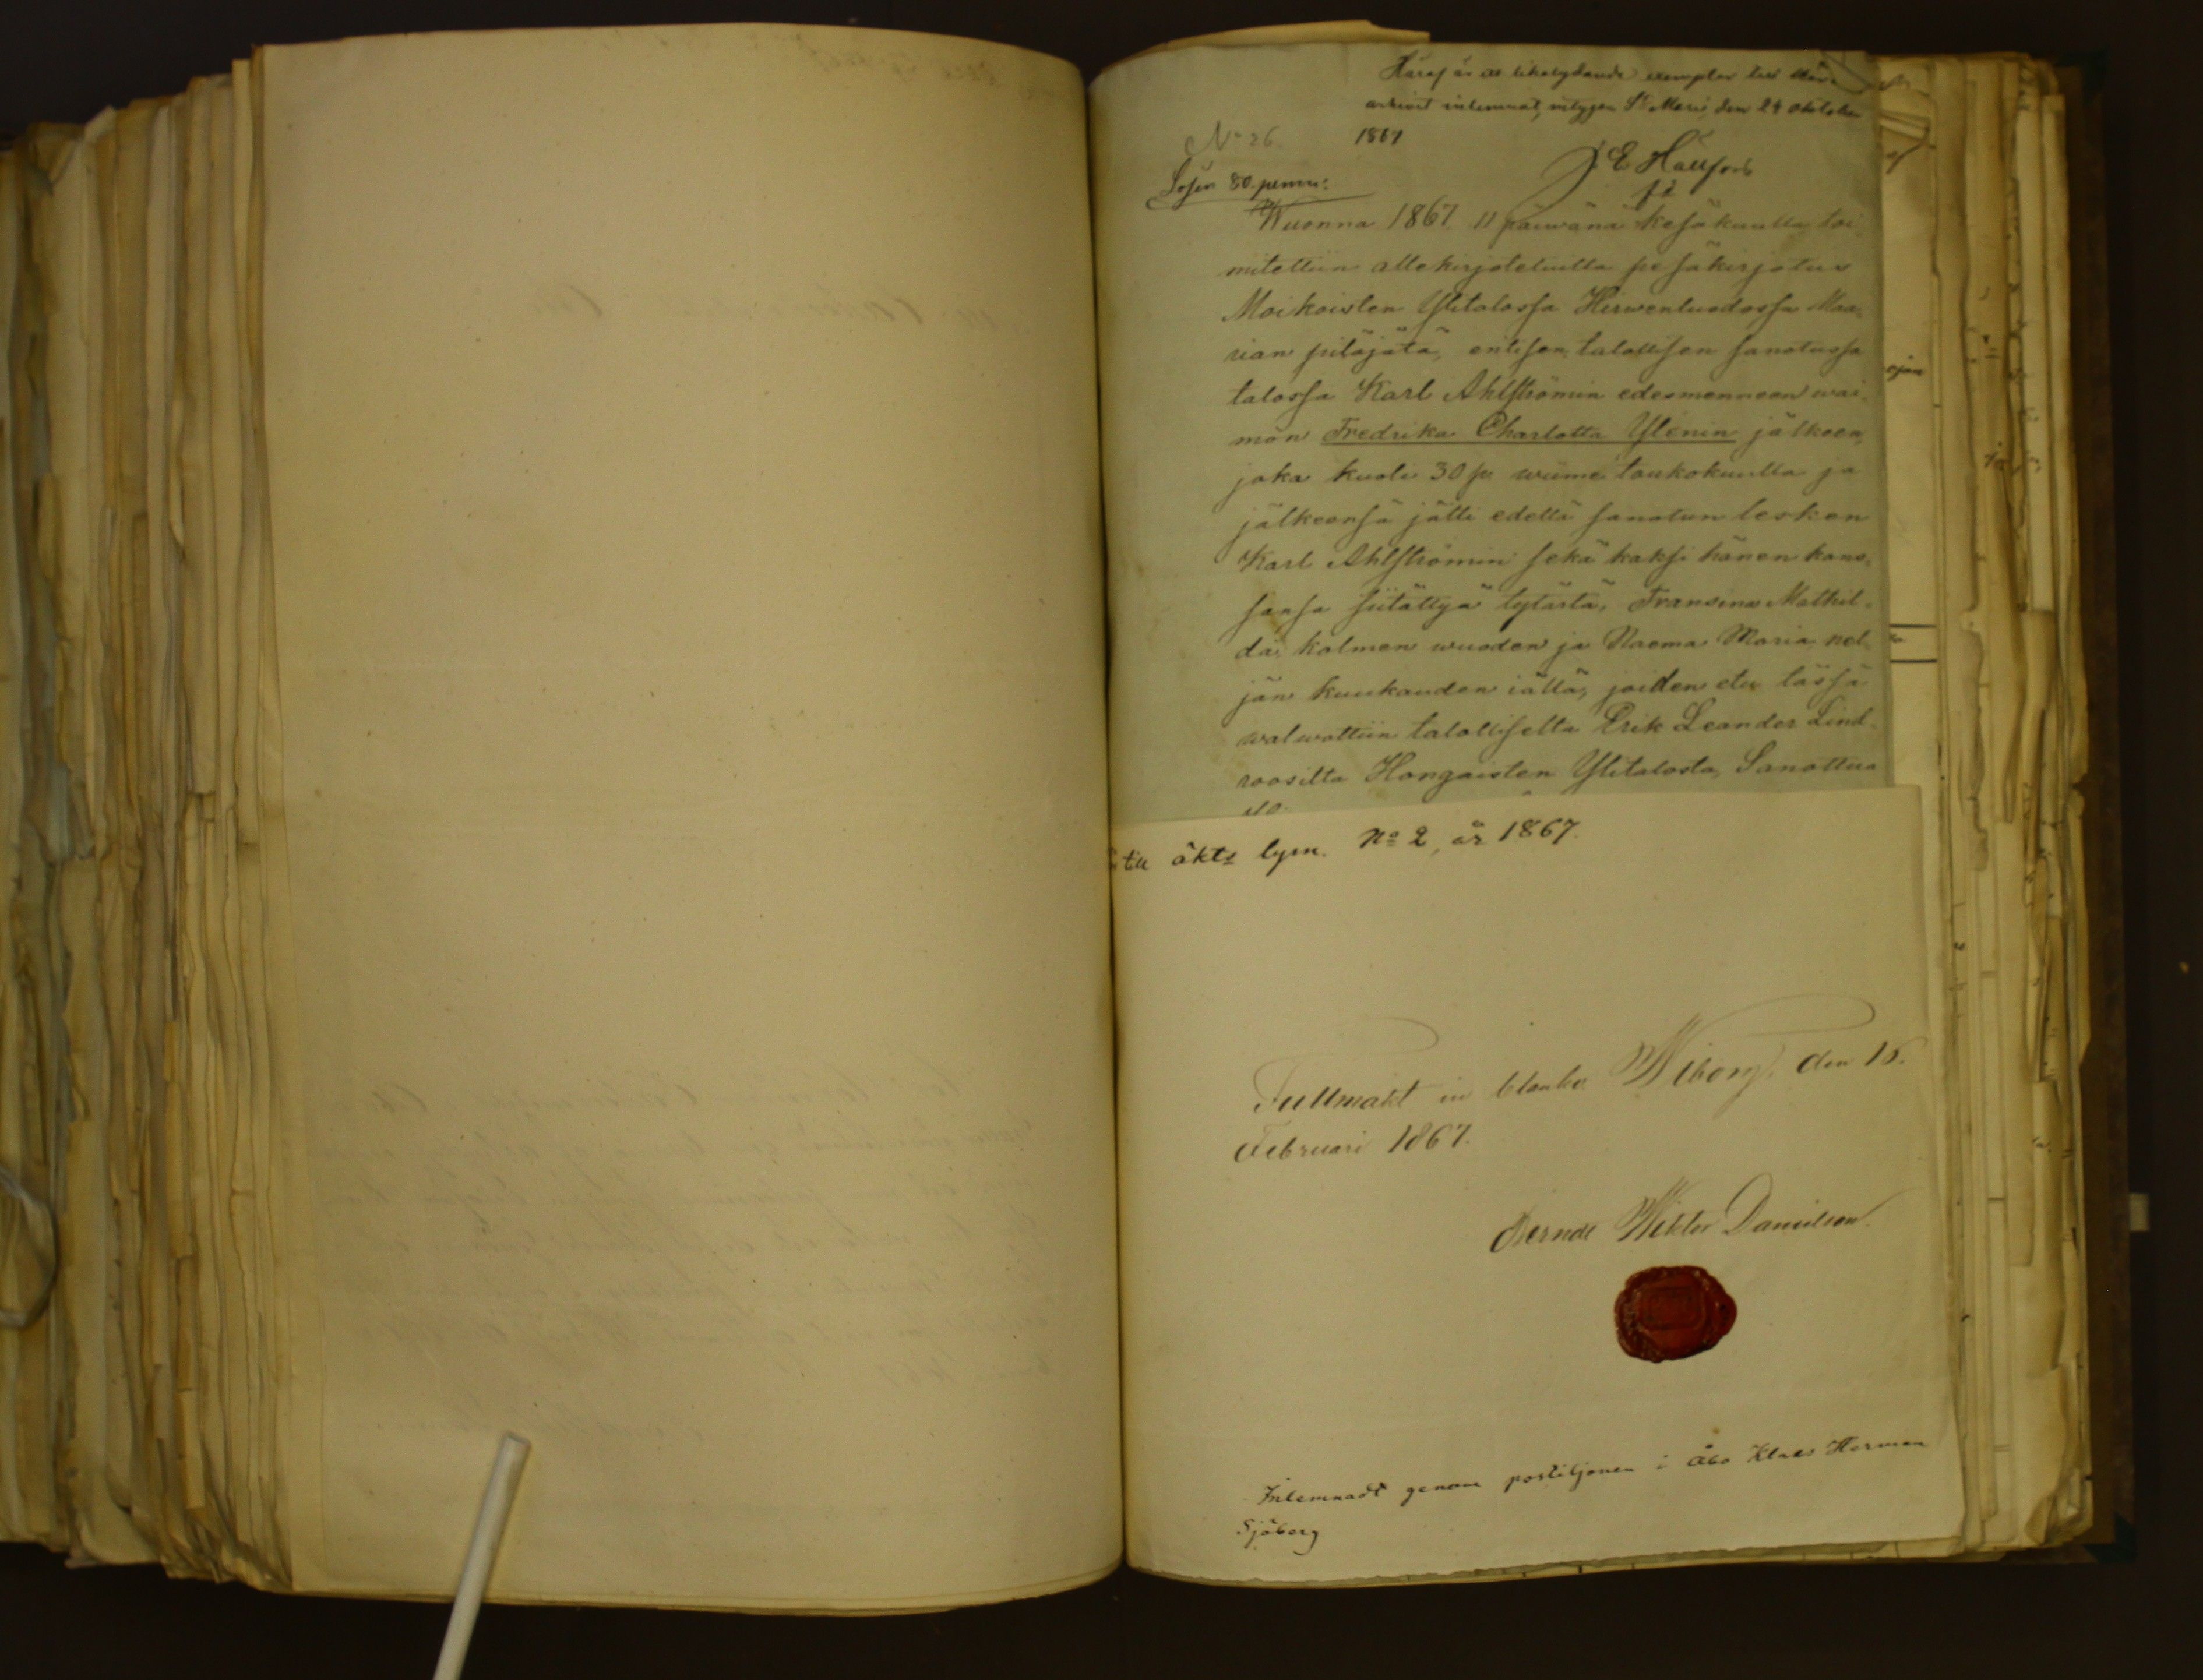 Häraf är ett likalydande exemplar till
arkivet inlemnat, intygar St Marie, den 28 Oktober
1867
J E Hällfors
No 26.
Lösen 80. penni:
Wuonna 1867. 11 päiwänä kesäkuulla toi-
mitettiin allekirjotetuilta pesäkirjotus
Moikoisten Ylitalossa Hirwenluodossa Maa-
rian pitäjätä, entisen talollisen sanotussa
talossa Karl Ahlströmin edesmenneen wai-
mon Fredrika Charlotta Ylenin jälkeen,
joka kuoli 30 p. wiime toukokuulla ja
jälkeensä jätti edellä sanotun lesken
Karl Ahlströmin sekä kaksi hänen kans-
sansa siitättyä tytärtä, Fransina Mathil-
da, kolmen wuoden ja Naema Maria, nel-
jän kuukauden iällä, joiden etu tässä
walwottiin talolliselta Erik Leander Lind-
roosilta Hongaisten Ylitalosta, Sanottua
till äkts lysn. No 2, år 1867.
Fullmakt in blanko. Wiborg, den 15.
Februari 1867.
Bernde Wiktor Danielson.
Inlemnadt genom postiljonen i Åbo Klaes Herman
Sjöberg